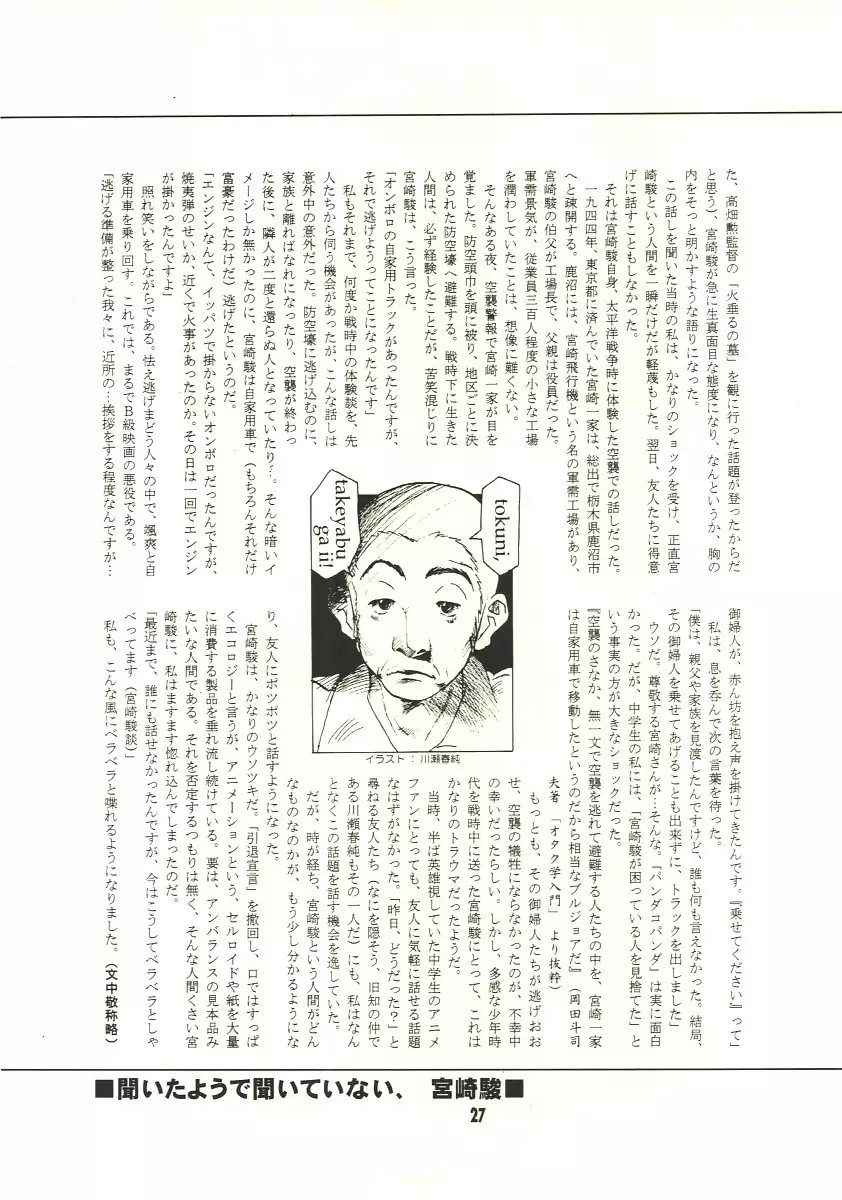 た、高畑勲監督の「火垂るの墓」を観に行った話題が登ったからだ
と思う）、宮崎駿が急に生真面目な態度になり、なんというか、胸の
内をそっと明かすような語りになった。
この話しを聞いた当時の私は、かなりのショックを受け、正直宮
崎駿という人間を一瞬だけだが軽蔑もした。翌日、友人たちに得意
げに話すこともしなかった。
それは宮崎駿自身、太平洋戦争時に体験した空襲での話しだった。
一九四四年、東京都に済んでいた宮崎一家は、総出で栃木県鹿沼市
へと疎開する。鹿沼には、宮崎飛行機という名の軍需工場があり、
宮崎駿の伯父が工場長で、父親は役員だった。
軍需景気が、従業員三百人程度の小さな工場
を潤わしていたことは、想像に難くない。
そんなある夜、空襲警報で宮崎一家が目を
覚ました。防空頭巾を頭に被り、地区ごとに決
められた防空壕へ避難する。戦時下に生きた
人間は、必ず経験したことだが、苦笑混じりに
宮崎駿は、こう言った。
「オンボロの自家用トラックがあったんですが、
それで逃げようってことになったんです」
私もそれまで、何度か戦時中の体験談を、先
人たちから伺う機会があったが、こんな話しは
意外中の意外だった。防空壕に逃げ込むのに、
家族と離ればなれになったり、空襲が終わっ
た後に、隣人が二度と還らぬ人となっていたり…。そんな暗いイ
メージしか無かったのに、宮崎駿は自家用車で（もちろんそれだけ
富豪だったわけだ）逃げたというのだ。
「エンジンなんて、イッパツで掛からないオンボロだったんですが、
焼夷弾のせいか、近くで火事があったのか。その日は一回でエンジン
が掛かったんですよ」
照れ笑いをしながらである。怯え逃げまどう人々の中で、颯爽と自
家用車を乗り回す。これでは、まるでB級映画の悪役である。
「逃げる準備が整った我々に、近所の…挨拶をする程度なんですが…
tokuni,
takeyabu
ga ii!
イラスト：川瀬春純
御婦人が、赤ん坊を抱え声を掛けてきたんです。『乗せてください』って」
私は、息を呑んで次の言葉を待った。
「僕は、親父や家族を見渡したんですけど、誰も何も言えなかった。結局、
その御婦人を乗せてあげることも出来ずに、トラックを出しました」
ウソだ。尊敬する宮崎さんが…そんな。『パンダコパンダ』は実に面白
かった。だが、中学生の私には、「宮崎駿が困っている人を見捨てた」と
いう事実の方が大きなショックだった。
『空襲のさなか、無一文で空襲を逃れて避難する人たちの中を、宮崎一家
は自家用車で移動したというのだから相当なブルジョアだ』（岡田斗司
夫著　「オタク学入門」より抜粋）
もっとも、その御婦人たちが逃げおお
せ、空襲の犠牲にならなかったのが、不幸中
の幸いだったらしい。しかし、多感な少年時
代を戦時中に送った宮崎駿にとって、これは
かなりのトラウマだったようだ。
当時、半ば英雄視していた中学生のアニメ
ファンにとっても、友人に気軽に話せる話題
なはずがなかった。「昨日、どうだった？」と
尋ねる友人たち（なにを隠そう、旧知の仲で
ある川瀬春純もその一人だ）にも、私はなん
となくこの話題を話す機会を逸していた。
だが、時が経ち、宮崎駿という人間がどん
なものなのかが、もう少し分かるようにな
り、友人にポツポツと話すようになった。
宮崎駿は、かなりのウソツキだ。「引退宣言」を撤回し、口ではすっぱ
くエコロジーと言うが、アニメーションという、セルロイドや紙を大量
に消費する製品を垂れ流し続けている。要は、アンバランスの見本品み
たいな人間である。それを否定するつもりは無く、そんな人間くさい宮
崎駿に、私はますます惚れ込んでしまったのだ。
「最近まで、誰にも話せなかったんですが、今はこうしてベラベラとしゃ
べってます（宮崎駿談）」
私も、こんな風にベラベラと喋れるようになりました。（文中敬称略）
■聞いたようで聞いていない、 宮崎駿■
27